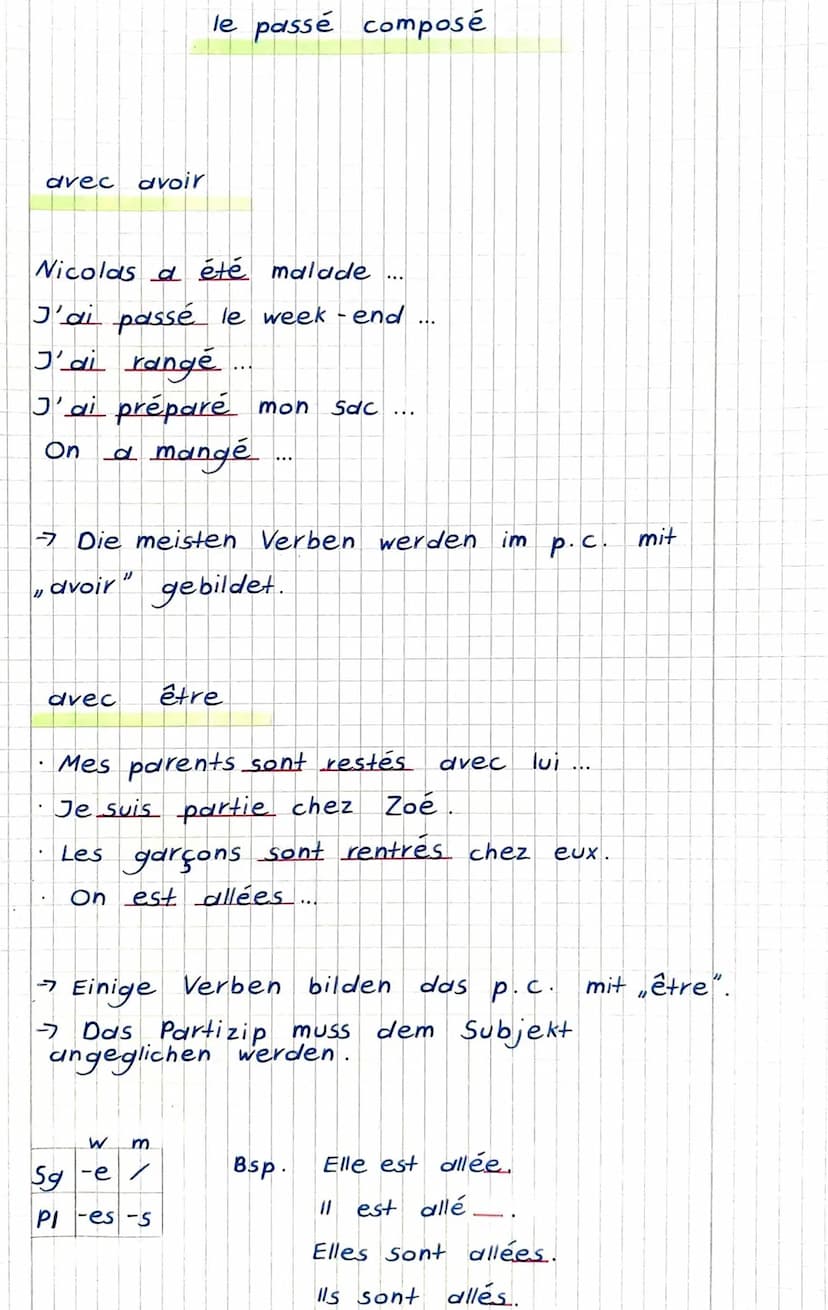 le passé composé
avec avoir
Nicolas a été malade ...
J'ai passé le week-end ...
J'ai rangé ...
J'ai préparé mon sac ...
On a mangé ...
→ Die meisten Verben werden im p.c. mit
„avoir" gebildet.
avec être
· Mes parents sont restés avec lui ...
· Je suis partie chez Zoé.
· Les garçons sont rentrés chez eux.
· On est allées ...
→ Einige Verben bilden das p.c. mit „être".
→ Das Partizip muss dem Subjekt
angeglichen werden.
w m
Sg -e /
Pl -es -s
Bsp. Elle est allée.
Il est allé __.
Elles sont allées.
Ils sont allés.